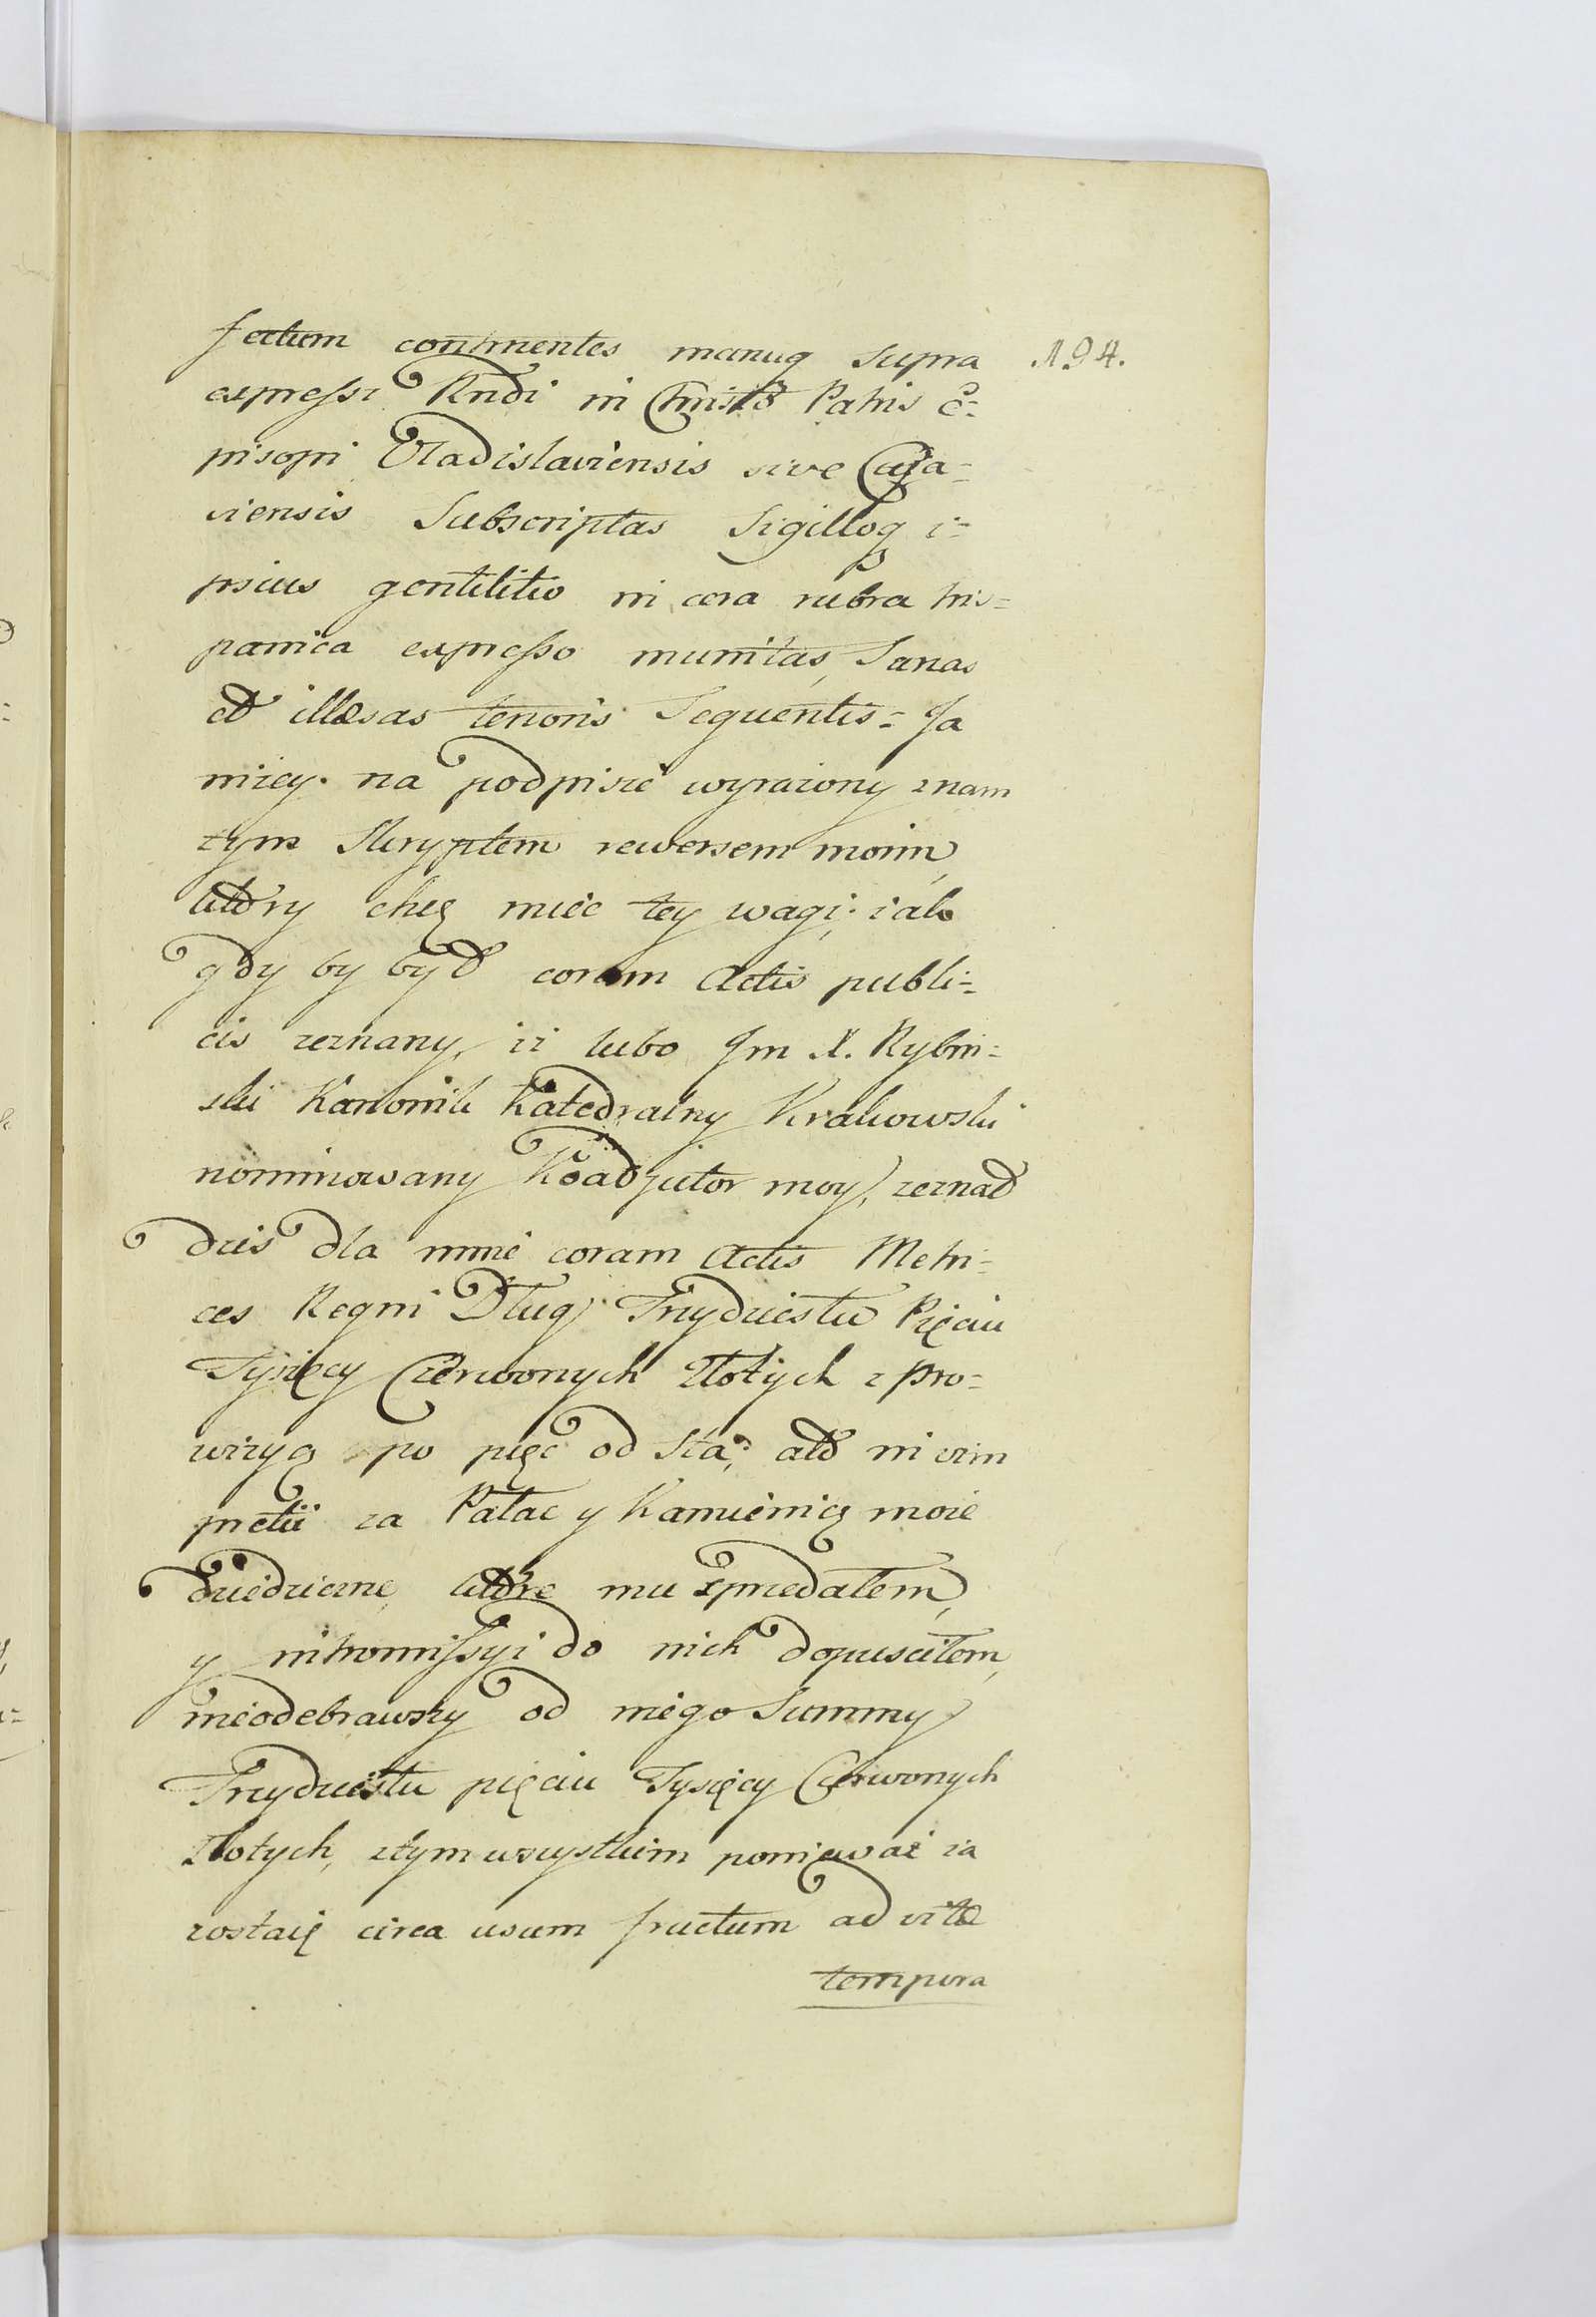 fectum continentes manuq supra
194.
expressi Rndi in Christo Patris E=
piscopi Vladislaviensis sive Cuja=
viensis Subscriptas Sigilloq i=
psius gentilitio in cera rubra his=
panica expresso munitas, Sanas
et illæsas tenoris Sequentis = Ja
niżey na podpisie wyrażony znam
tym Skryptem rewersem moim,
który chcę mieć tey wagi, iak
gdy by był coram Actis publi=
cis zeznany, iż lubo Jm X. Rybin=
ski Kanonik Katedralny Krakowski
nominowany Koadjutor moy, zeznał
dziś dla mnie coram Actis Metri=
ces Regni Dług Trzydziestu Pięciu
Tysięcy Czerwonych Złotych z pro=
wizyą po pięć od sta, ale in vim
pretii za Pałac y Kamienicę moie
dziedziczne, które mu sprzedałem,
y intromissyi do nich dopuściłem,
nieodebrawszy od niego Summy
Trzydziestu pięciu Tysięcy Czerwonych
Złotych, z tym wszystkim ponieważ za
zostaię circa usum fructum ad vitæ
tempora